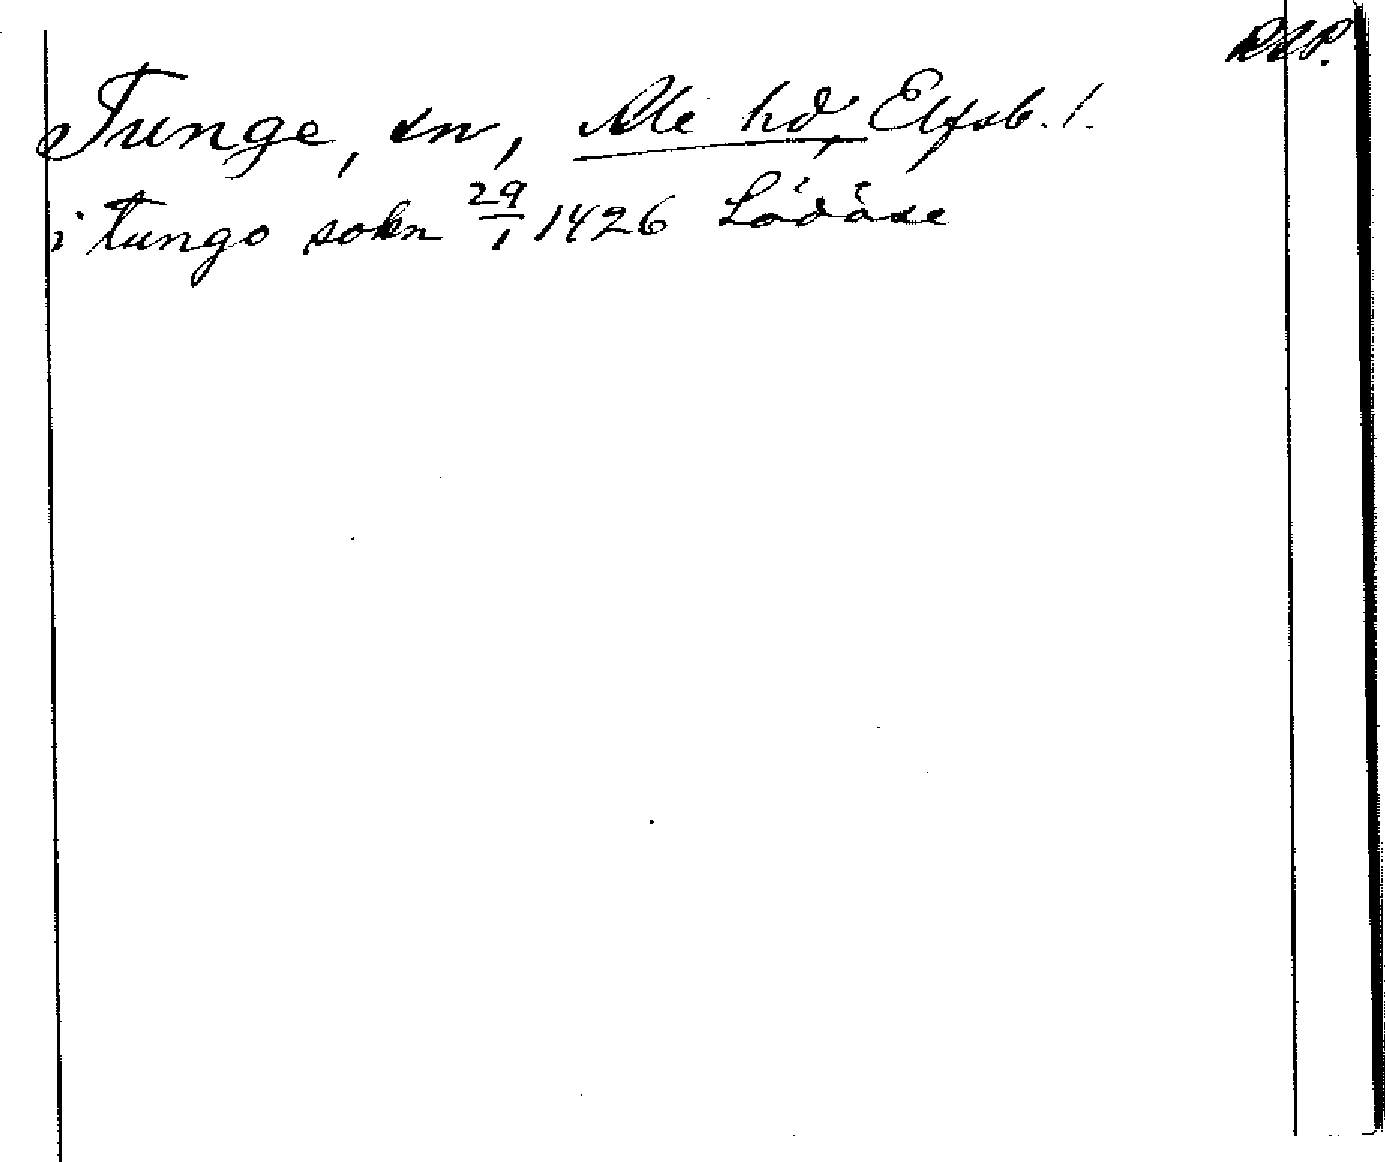 RAP.
Tunge, sn, Ale hd, Elfsb. l.
i tungo sokn 29/1 1426 Lödöse